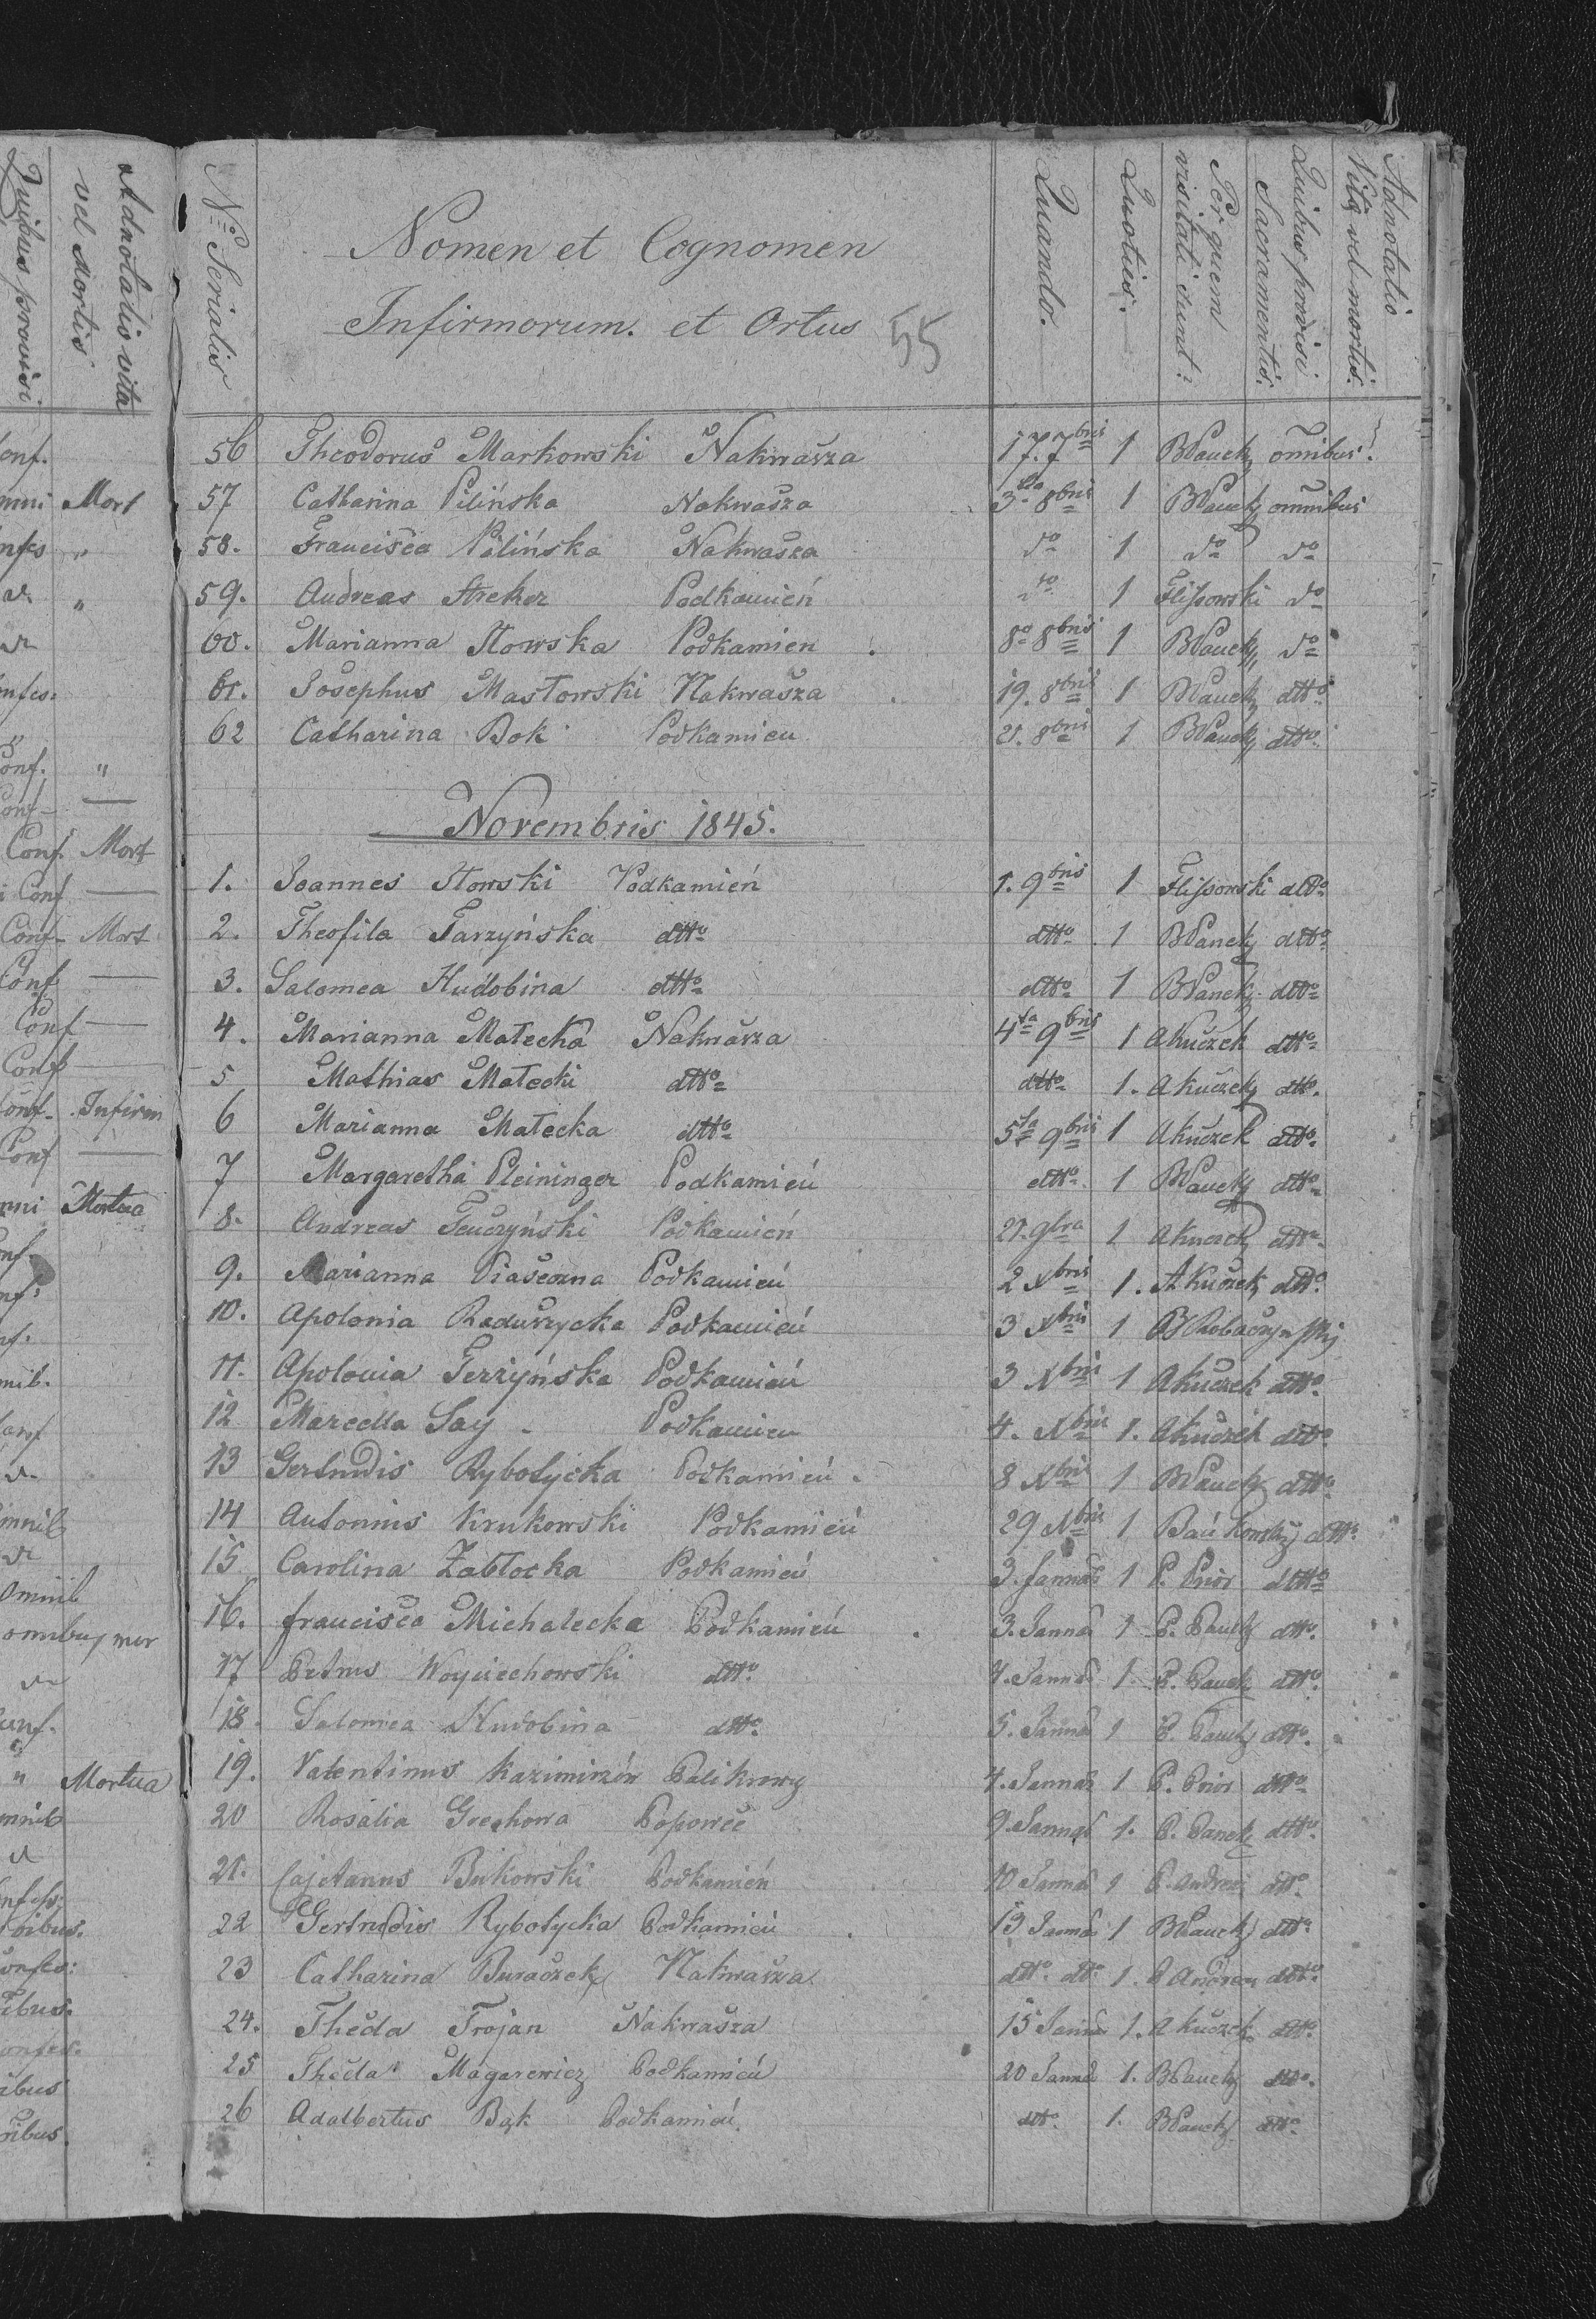 Quibus provisi
Adnotatio vita
vel Mortis
Mort
Conf. Mort
Conf
Conf Mort
Conf
Conf
Conf
Infirm
Conf
Mortua
omnib
Mortua
No Serialis
Nomen et Cognomen
Infirmorum. et Ortus 55
Quando.
Quoties.
Per quem
visitati sunt?
Quibus provisi
Sacramentis.
Adnotatio
Vitæ vel mortis.
56 Theodorus Markowski Nakwasza 17. 7bris 1 BPauck omnibus.
57 Catharina Pilińska Nakwasza 3 8bris 1 BPauck omnibus
58. Francisca Pilińska Nakwasza do 1 do do
59. Andreas Streker Podkamień 1 Flissowski do
60. Marianna Słowska Podkamien 8o 8bris 1 BPauck do
61. Josephus Masłowski Nakwasza 19. 8bris 1 BPauck dtto
62 Catharina Bok Podkamien 21. 8bris 1 BPauck dtto
Novembris 1845.
1. Joannes Słowski Podkamień 1. 9bris 1 Flissowski dtto
2. Theofila Tarzyńska dtto dtto 1 BPauck dtto
3. Salomea Hudobina dtto dtto 1 BPauck dtto
4. Marianna Małecka Nakwasza 4ta 9bris 1 AKuczek dtto
5 Mathias Małecki dtto dtto 1. AKuczek dtto.
6 Marianna Małecka dtto 5ta 9bris 1 AKuczek dtto.
7 Margaretha Pleininger Podkamień dtto 1 BPauck dtto
8. Andreas Podkamień 21. 9bra 1 AKuczek dtto
9. Marianna Piaseczna Podkamień 2 Xbris 1. A.Kuczek dtto
10. Apolonia Raduszycka Podkamień 3 Xbris 1
11. Apolonia Terzyńska Podkamień 3 Xbris 1 AKuczek dtto
12 Marcella Say Podkamien 4. Xbris 1. AKuczek dtto
13 Gertrudis Rybotycka Podkamień 8 Xbris 1 BPauck dtto
14 Antonius Krukowski Podkamień 29 Xbris 1 dtto
15 Carolina Zabłocka Podkamień 3. Januar 1 P. Prior dtto
16. francisca Michalecka Podkamień 3. Januar 1 P. Pauck dtto.
17 Petrus Woyciechowski dtto 4. Januar 1. P. Pauck dtto.
18 Salomea Hudobina dtto 5. Januar 1 P. Pauck dtto.
19. Valentinus Kazimirów Palikrowy 4. Januar 1 P. Prior dtto
20 Rosalia Grechowa Popowce 9. Januar 1. P. Pauck dtto
21. Cajetanus Bukowski Podkamień 10 Januar 1 P. Andrea dtto.
22 Gertrudis Rybotycka Podkamień 13 Januar 1 BPauck dtto
23 Catharina Buraczek Nakwasza dtto. dto 1. P Andrea dtto
24. Theda Trojan Nakwasza 15 Januar 1. A Kuczek dtto
25 Theda Magerewicz Podkamień 20 Januar 1. BPauck dtto.
26 Adalbertus Bąk Podkamień dtto. 1. BPauck dtto